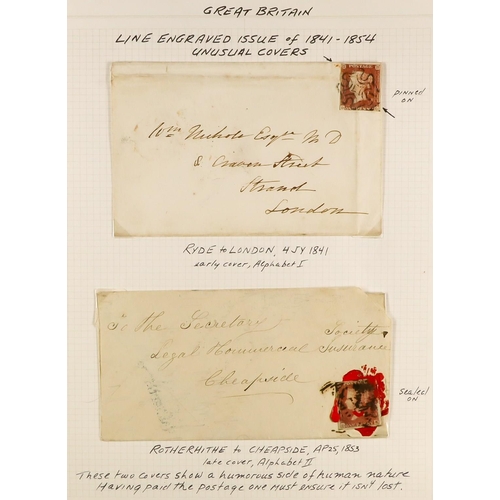 GREAT BRITAIN
LINE ENGRAVED ISSUE of 1841-1854
UNUSUAL COVERS
PINNED
ON
Wm Nichols Esqre M D
8 Craven Street
Strand
London
RYDE to LONDON, 4 JY 1841
early cover, Alphabet I
To the Secretary
Society
Legal & Commercial Insurance
Cheapside
Sealed
ON
ROTHERHITHE to CHEAPSIDE, AP25, 1853
late cover, Alphabet II
These two covers show a humorous side of human nature
Having paid the postage one must ensure it isn't lost.